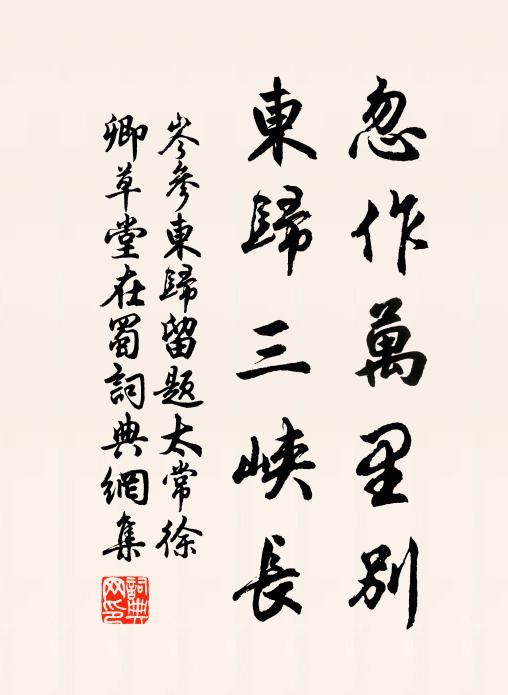 忽作萬里別
東歸三峽長
岑參東歸留題太常徐
卿草堂在蜀詞典網集
詞典
网印